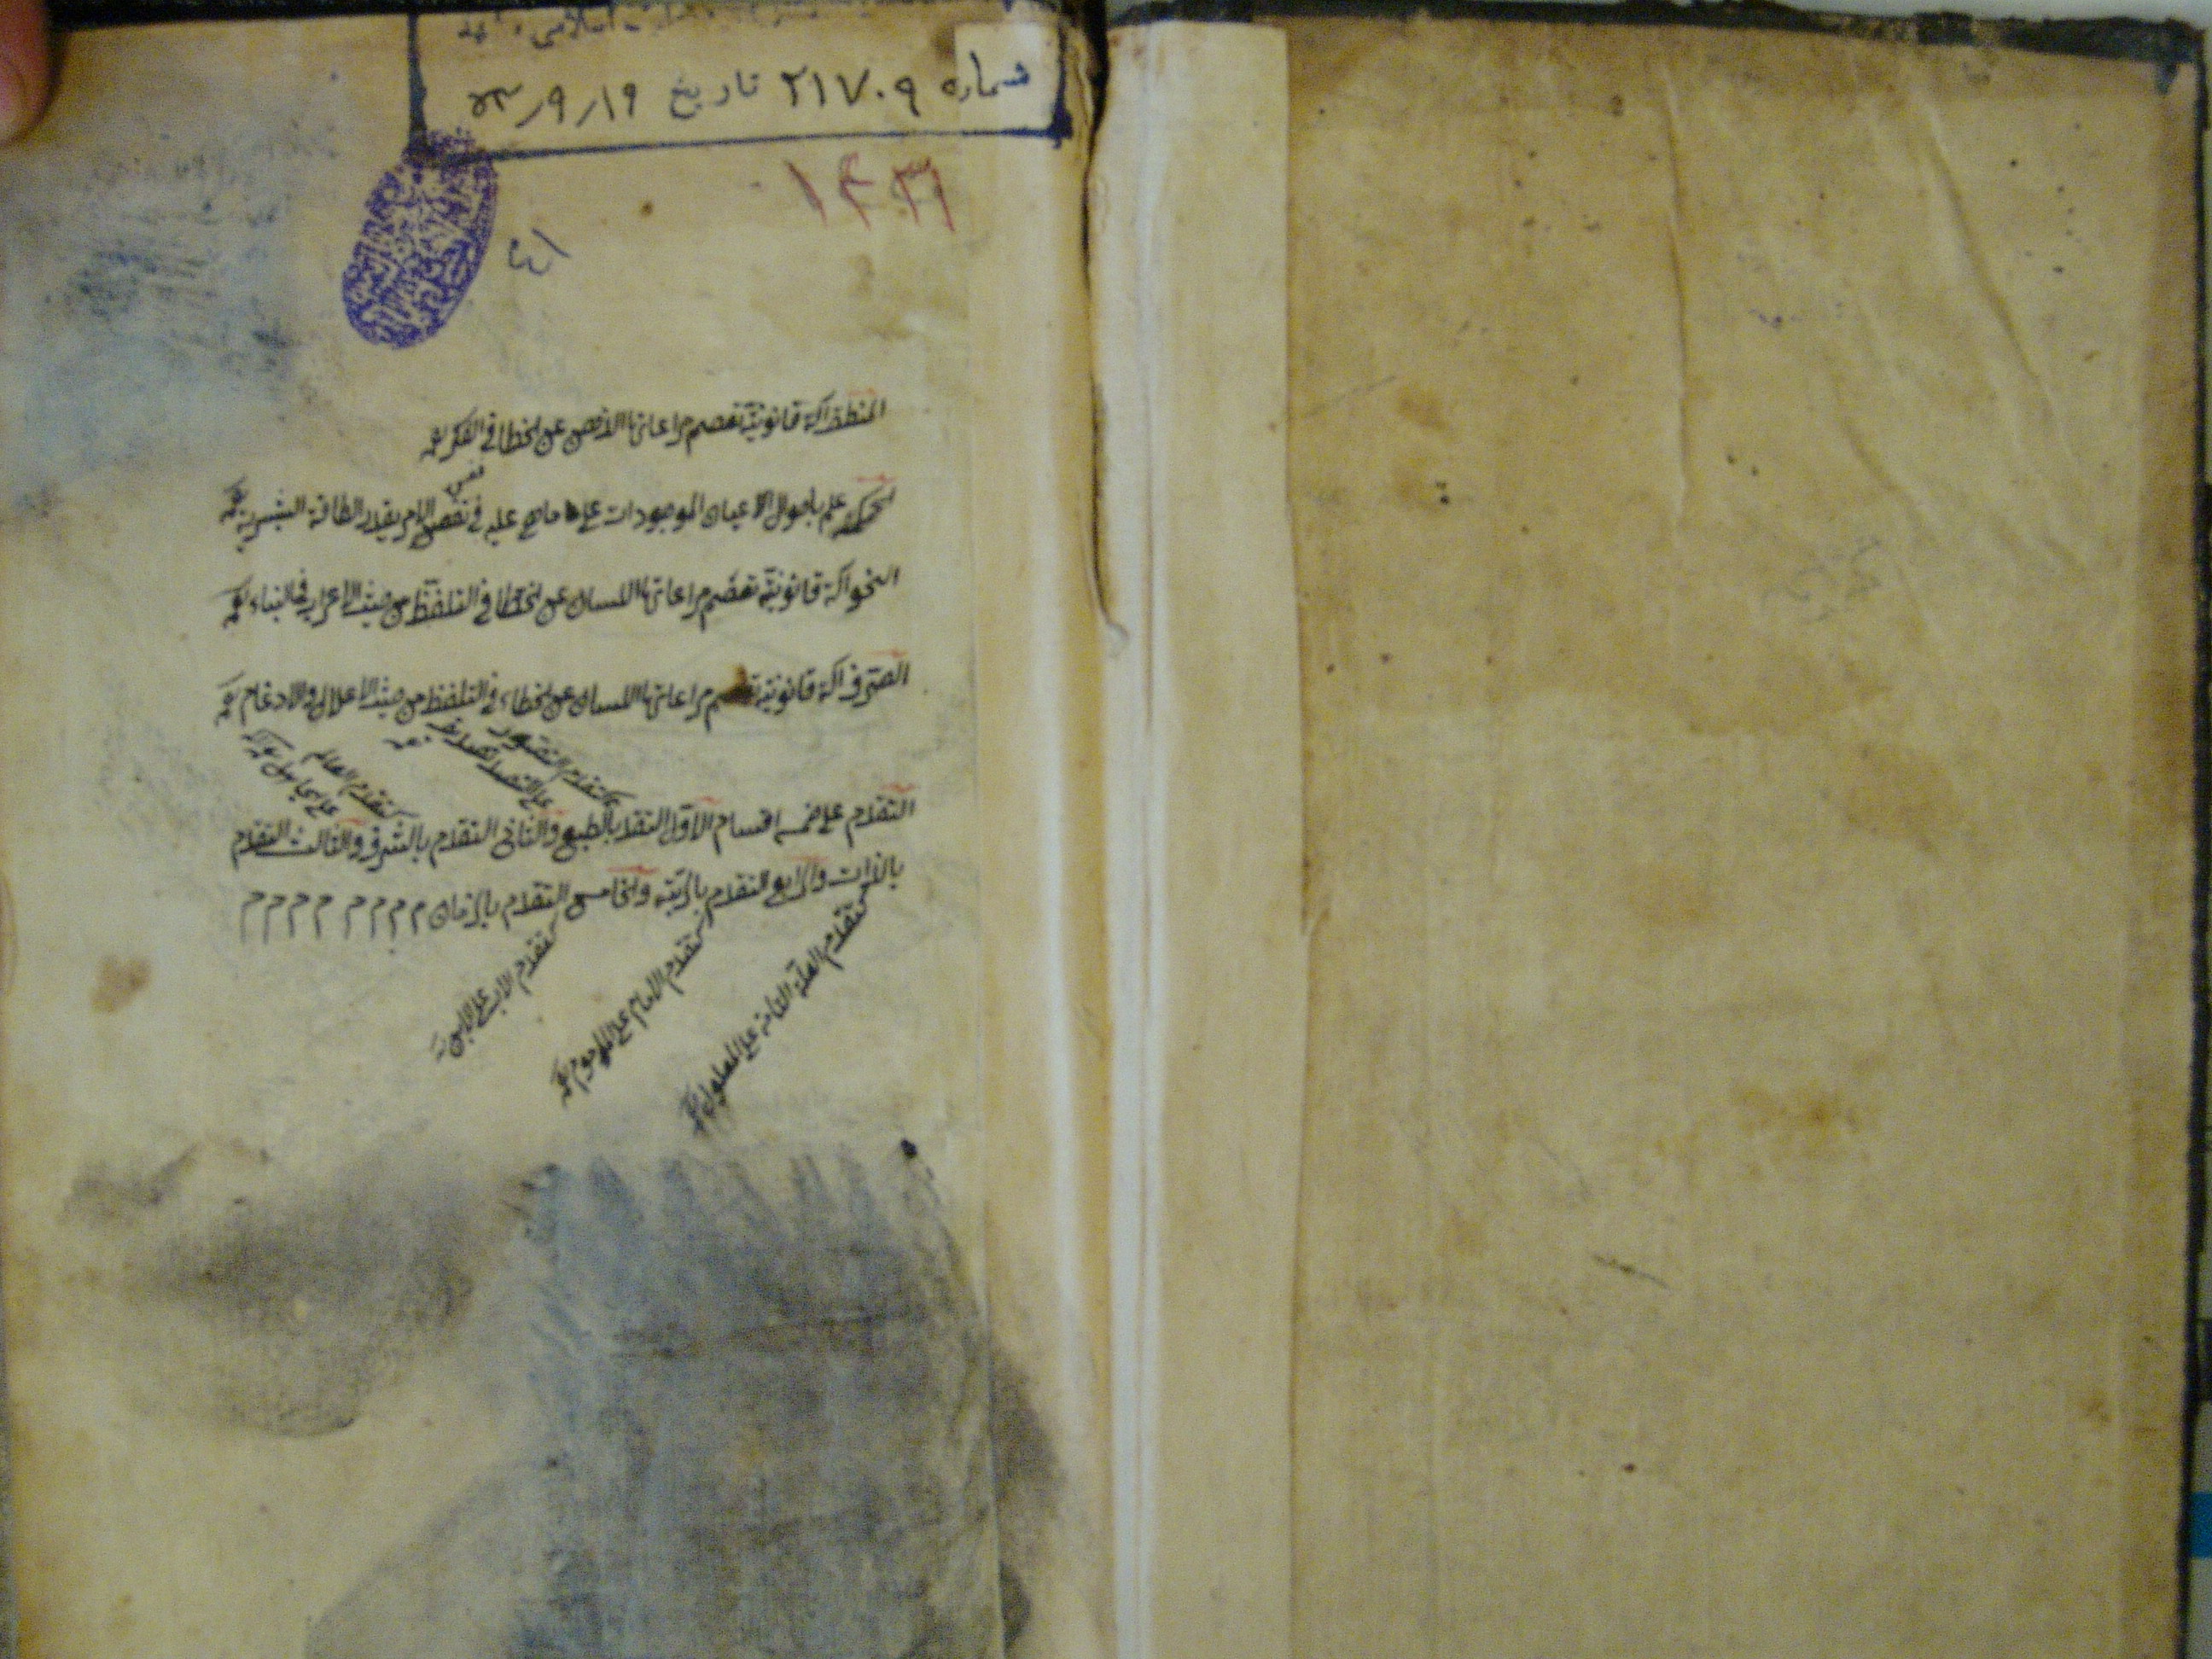 شماره ۲۱۷۰۹ تاریخ ۱۹/۹/
۱۴۳۱
المنطق آلة قانونية تعصم مراعاتها الذهن عن الخطا في الفكر
الحكمة علم باحوال الاعيان الموجودات على ما هي عليه في نفس الامر بقدر الطاقة البشرية
نفس
النحو آلة قانونية تعصم مراعاتها اللسان عن الخطا في التلفظ من حيث الاعراب والبناء
الصرف آلة قانونية تعصم مراعاتها اللسان عن الخطاء في التلفظ من حيث الاعلال والادغام
كتقدم التصور
على التصديق
كتقدم العالم
على الجاهل
التقدم على خمسة اقسام الاول التقدم بالطبع والثاني التقدم بالشرف والثالث التقدم
بالذات والرابع التقدم بالرتبة والخامس التقدم بالزمان م م م م م م م م
كتقدم العلة التامة على المعلول
كتقدم الامام على الماموم
كتقدم الاب على الابن